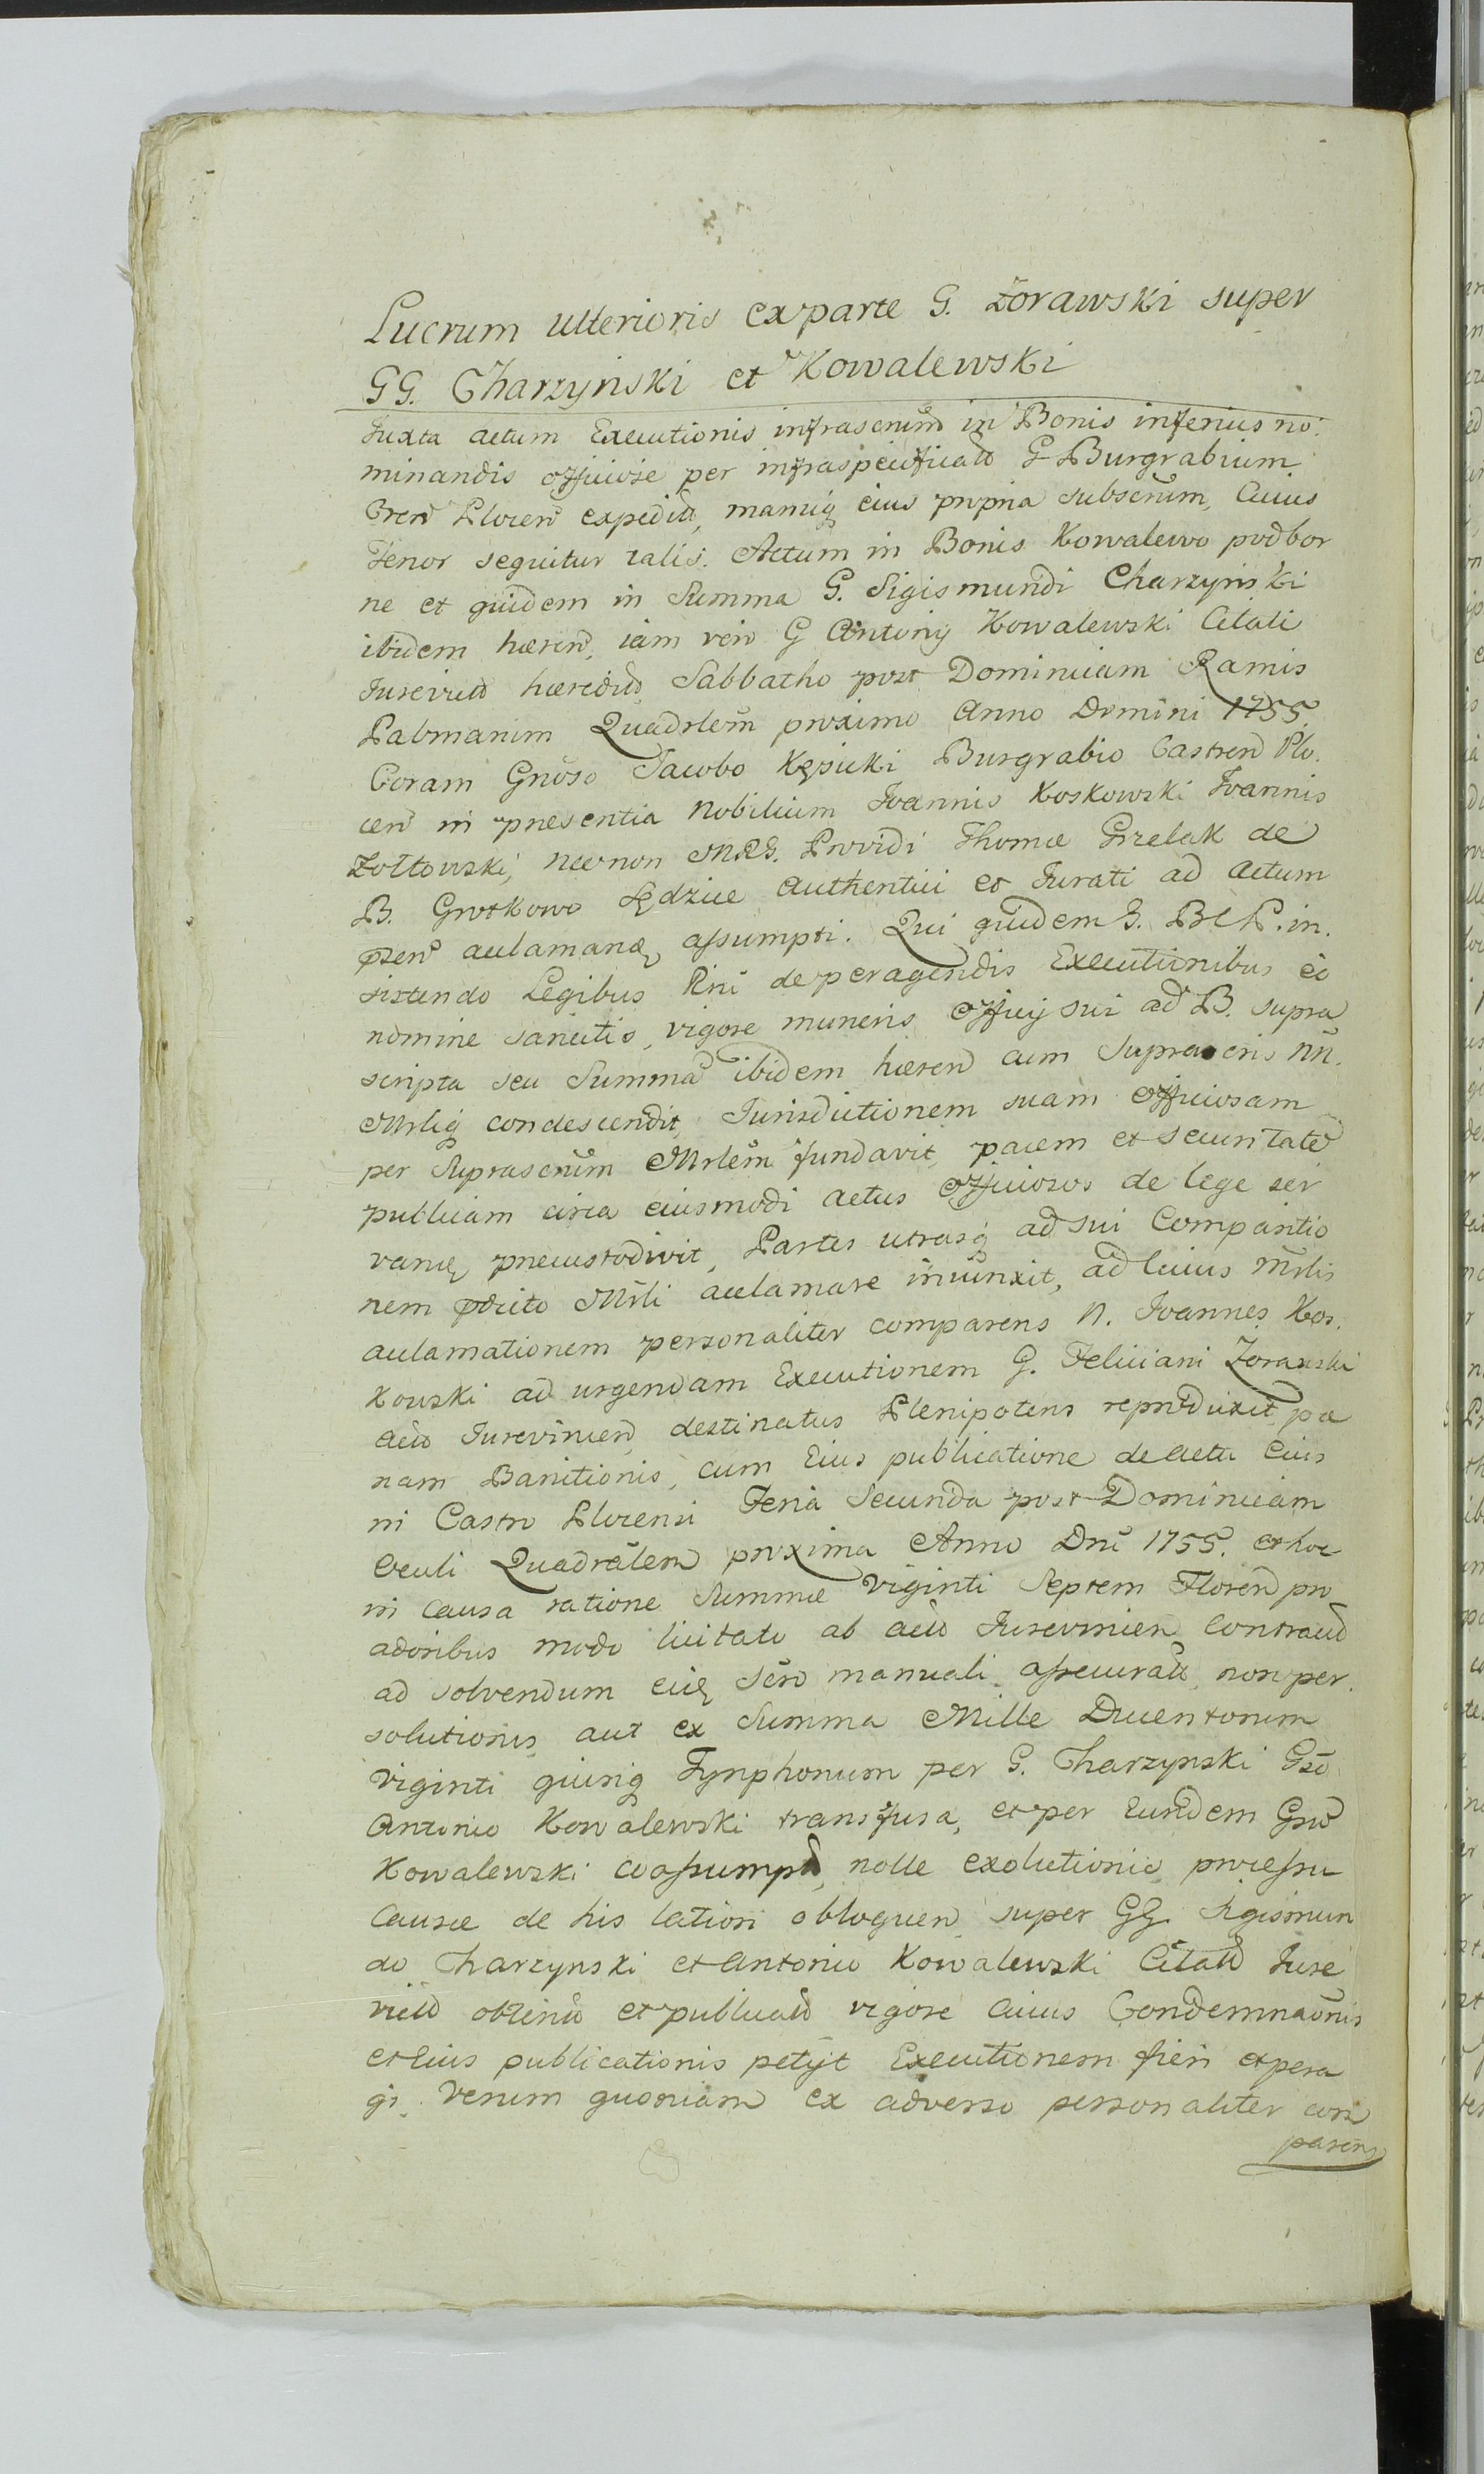 Lucrum ulterioris ex parte G. Żorawski super
GG. Charzyński et Kowalewski
Juxta actum Executionis infrascrium in Bonis inferius no:
minandis officiose per infraspecificatũ G Burgrabium
Cren Plocen expeditũ, manuq̃ eius propria subscrium, Cuius
Tenor sequitur talis. Actum in Bonis Kowalewo podbor
ne et quidem in Summa G. Sigismundi Charzyński
ibidem hæren, iam vero G Antonij Kowalewski Citati
Jurevict hæredit Sabbatho post Dominicam Ramis
Palmarum Quadrlem proximo Anno Domini 1755.
Coram Gnoso Jacobo Kępicki Burgrabio Castren Plo.
cen in præsentia Nobilium Joannis Koskowski Joannis
Żołtowski, necnon MRG. Providi Thomæ Grzelak de
B. Grotkowo Sędzice Authentici et Jurati ad actum
præsen acclamanđ assumpti. Qui quidem G. BCP. in.
sistendo Legibus Rni de peragendis Executionibus eo
nomine sancitis, vigore muneris Officij sui ad B. supra
scripta seu Summã ibidem hæren cum Suprascris NN.
Mrliq̃ condescendit, Jurisdictionem suam Officiosam
per Suprascrium Mrlem fundavit, pacem et securitatẽ
publicam circa eiusmodi actus Officiosos de lege ser
vanđ præcustodivit, Partes utrasq̃ ad sui Comparitio
nem prædicto Mrli acclamare iniunxit, ad cuius Mrlis
acclamationem personaliter comparens N. Joannes Kos.
kowski ad urgendam Executionem G. Feliciani Żorawski
Act Jurevincen destinatus Plenipotens reproduxit pœ
nam Banitionis, cum Eius publicatione de actu Eius
in Castro Plocensi Feria Secunda post Dominicam
Oculi Quadrãlem proxima Anno Dni 1755. ex hoc
in causa ratione Summæ Viginti Septem Floren pro
adoribus modo licitato ab act Jurevincen Contract
ad solvendum eiq̃ Scro manuali assecurat, non per.
solutionis aut ex Summa Mille Ducentorum
Viginti quinq̃ Tynphonum per G. Charzynski Gso
Antonio Kowalewski transfusa, et per Eundem Gsum
Kowalewski coassumpt, nolle exolutionis processu
Causæ de his latiori obloquen super GG. Sigismun
do Charzynski et Antonio Kowalewski Citatis Jure
vict obtent et publicat vigore Cuius Condemnaõnis
et Eius publicationis petijt Executionem fieri et pera
gi. Verum quoniam ex adverso personaliter com
parens